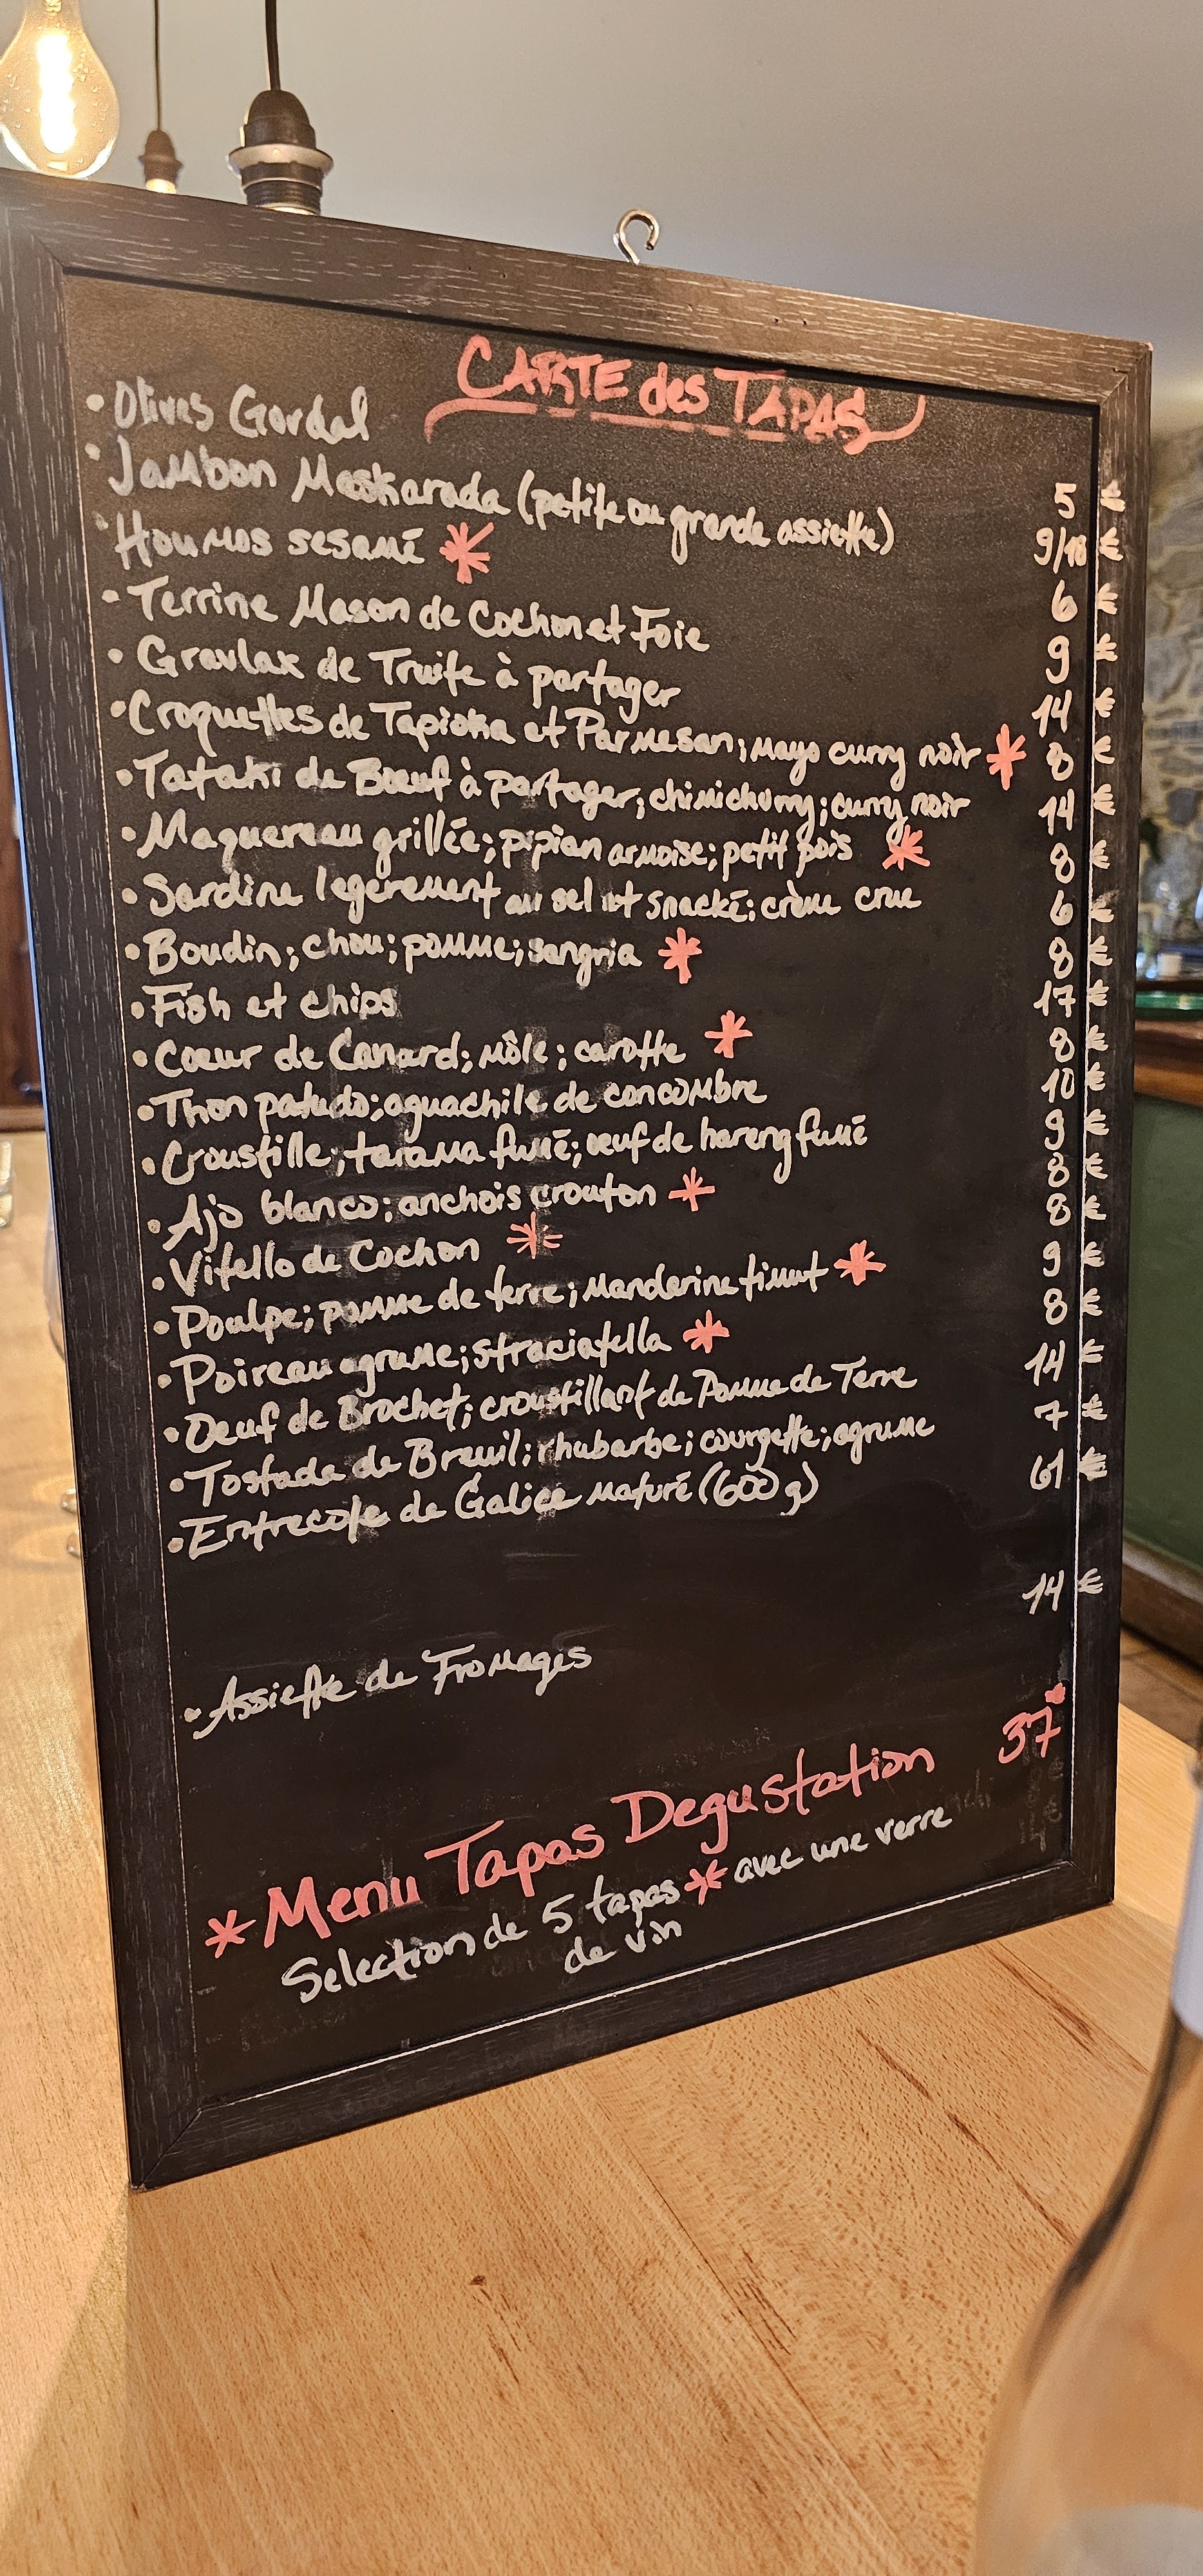 CARTE des TAPAS
• Olives Gordal 5 €
• Jambon Maskarada (petite ou grande assiette) 9/18 €
• Houmos sesamé * 6 €
• Terrine Mason de Cochon et Foie 9 €
• Gravlax de Truite à partager 14 €
• Croquettes de Tapioka et Parmesan; mayo curry noir * 8 €
• Tataki de Bœuf à partager; chimichurry; curry noir 14 €
• Maquereau grillée; pipian armoise; petit pois * 8 €
• Sardine legèrement au sel et snacké; crème crue 6 €
• Boudin; chou; pomme; sangria * 8 €
• Fish et chips 17 €
• Cœur de Canard; môle; carotte * 8 €
• Thon patudo; aguachile de concombre 10 €
• Croustille; tarama fumé; œuf de hareng fumé 9 €
• Ajo blanco; anchois crouton * 8 €
• Vitello de Cochon * 8 €
• Poulpe; pomme de terre; Mandarine timut * 9 €
• Poireau agrume; straciatella * 8 €
• Oeuf de Brochet; croustillant de Pomme de Terre 14 €
• Tostada de Breuil; rhubarbe; courgette; agrume 7 €
• Entrecote de Galice maturé (600 g) 61 €
• Assiette de Fromages 14 €
* Menu Tapas Degustation 37
Selection de 5 tapas * avec une verre
de vin